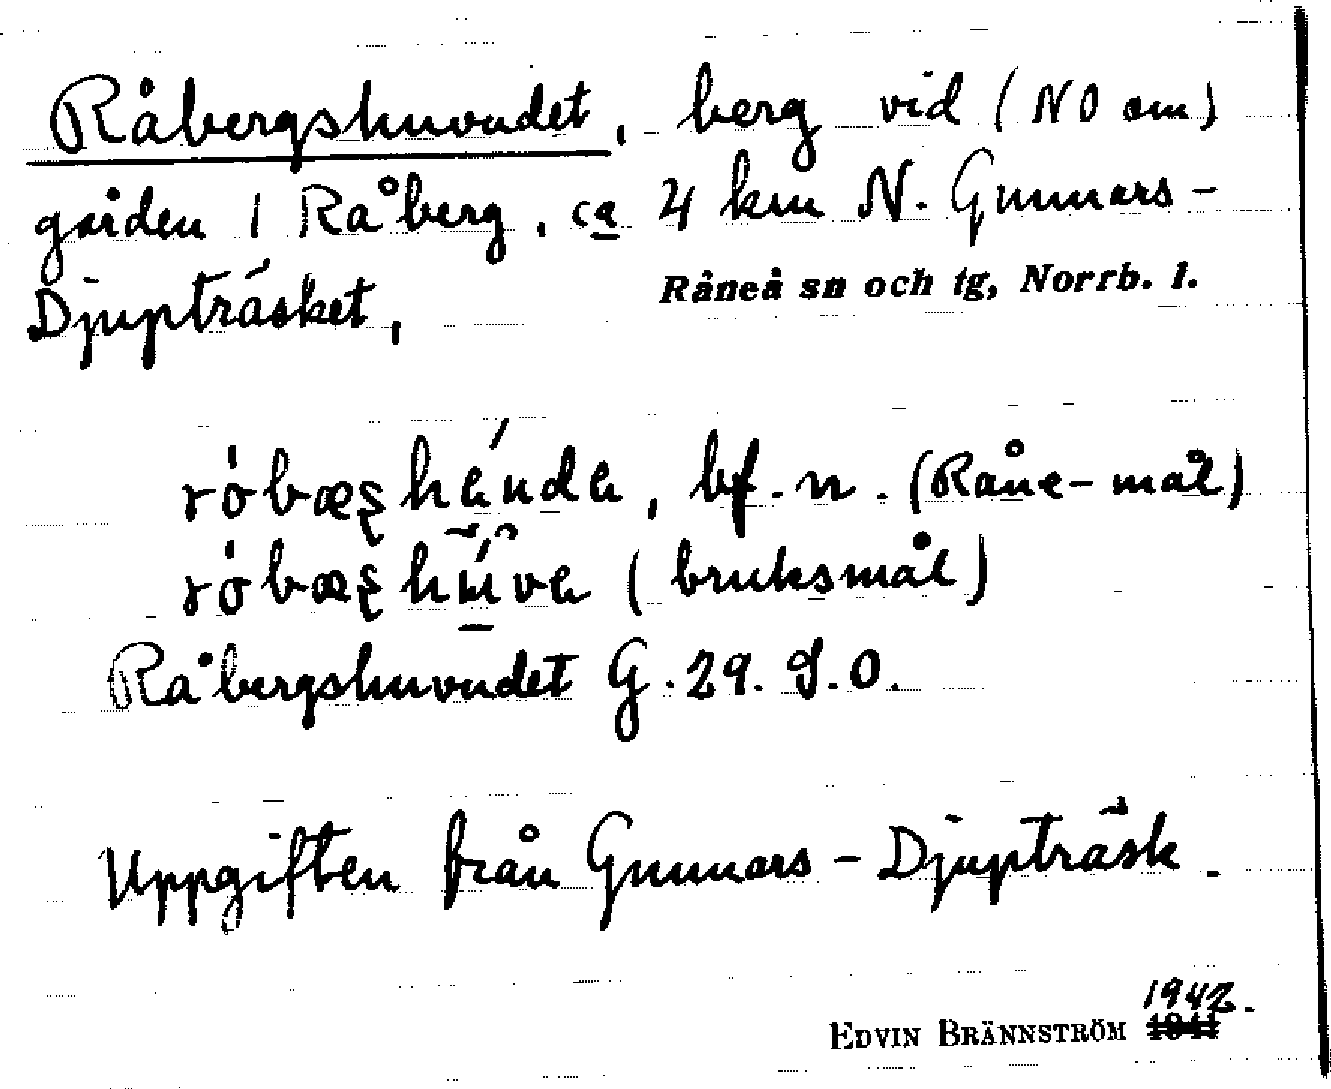 Råbergshuvudet, berg vid (NO om)
gården 1 Råberg, ca 4 km N. Gunnars-
Djupträsket, Råneå sn och tg, Norrb. l.
bf. n. (Råne-mål)
(bruksmål)
Råbergshuvudet G. 29. J.O.
Uppgiften från Gunnars-Djupträsk.
1942.
EDVIN BRÄNNSTRÖM 1941